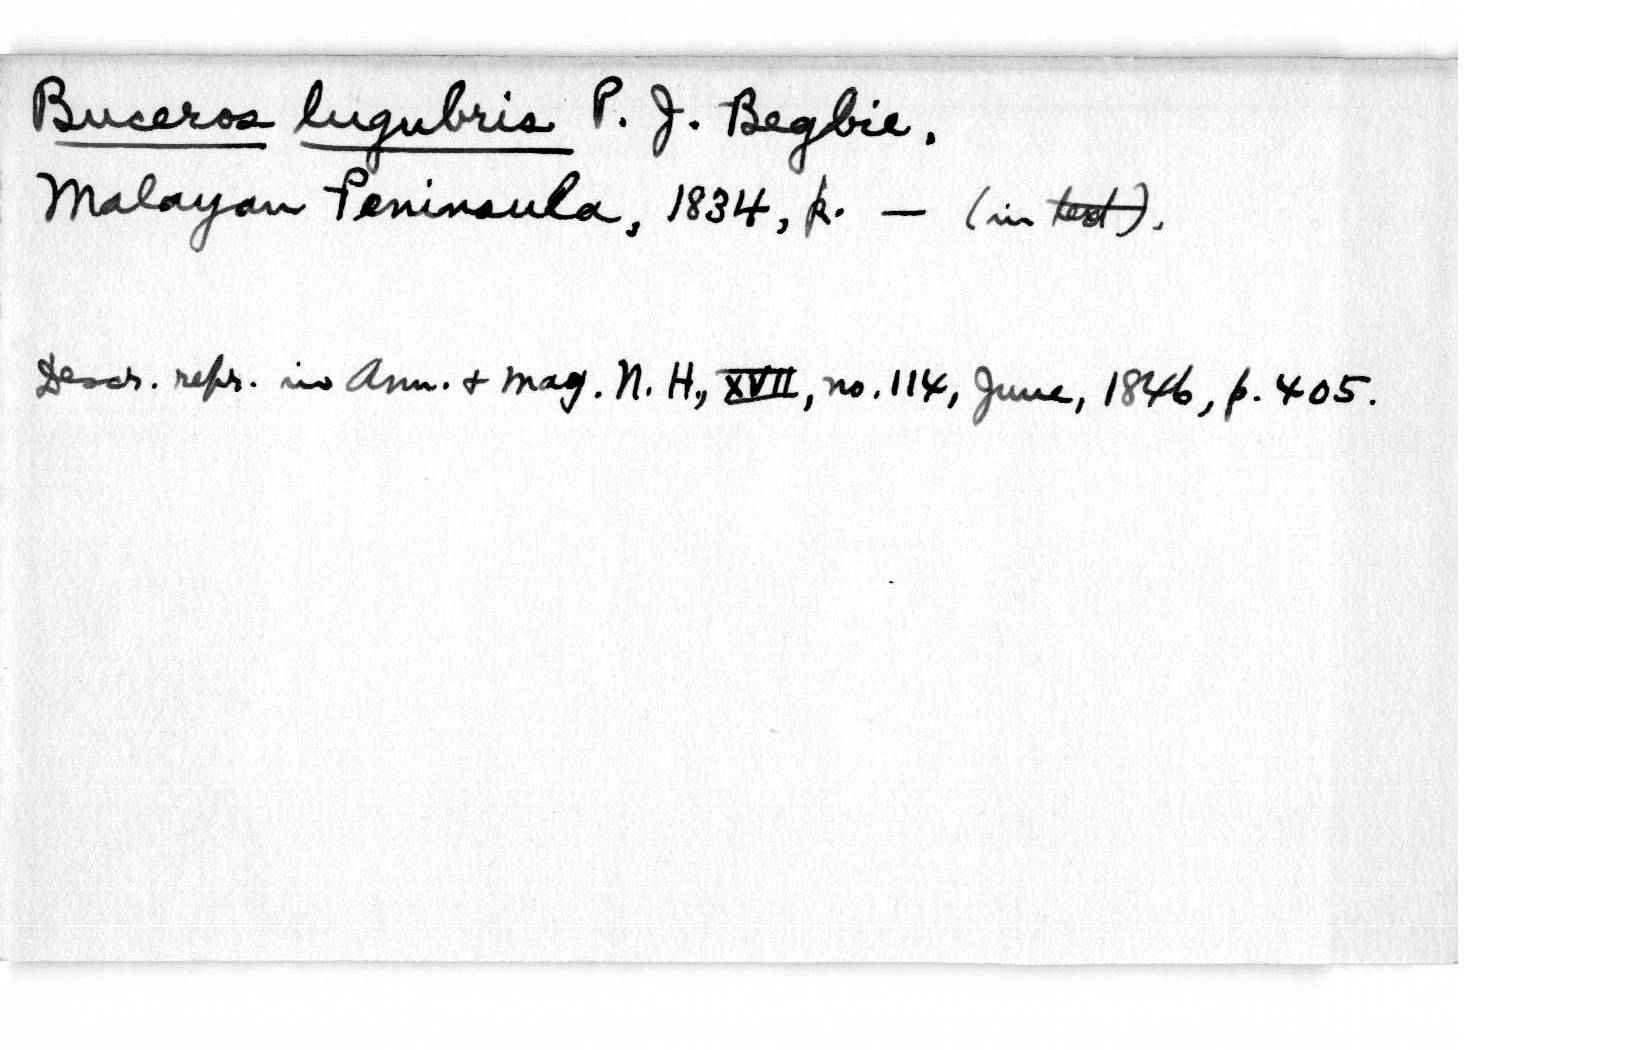 Buceros lugubris P. J. Begbie.
Malayan Peninsula, 1834, p. — (in text).
Descr. repr. in Ann. + Mag. N. H., XVII, no. 114, June, 1846, p. 405.